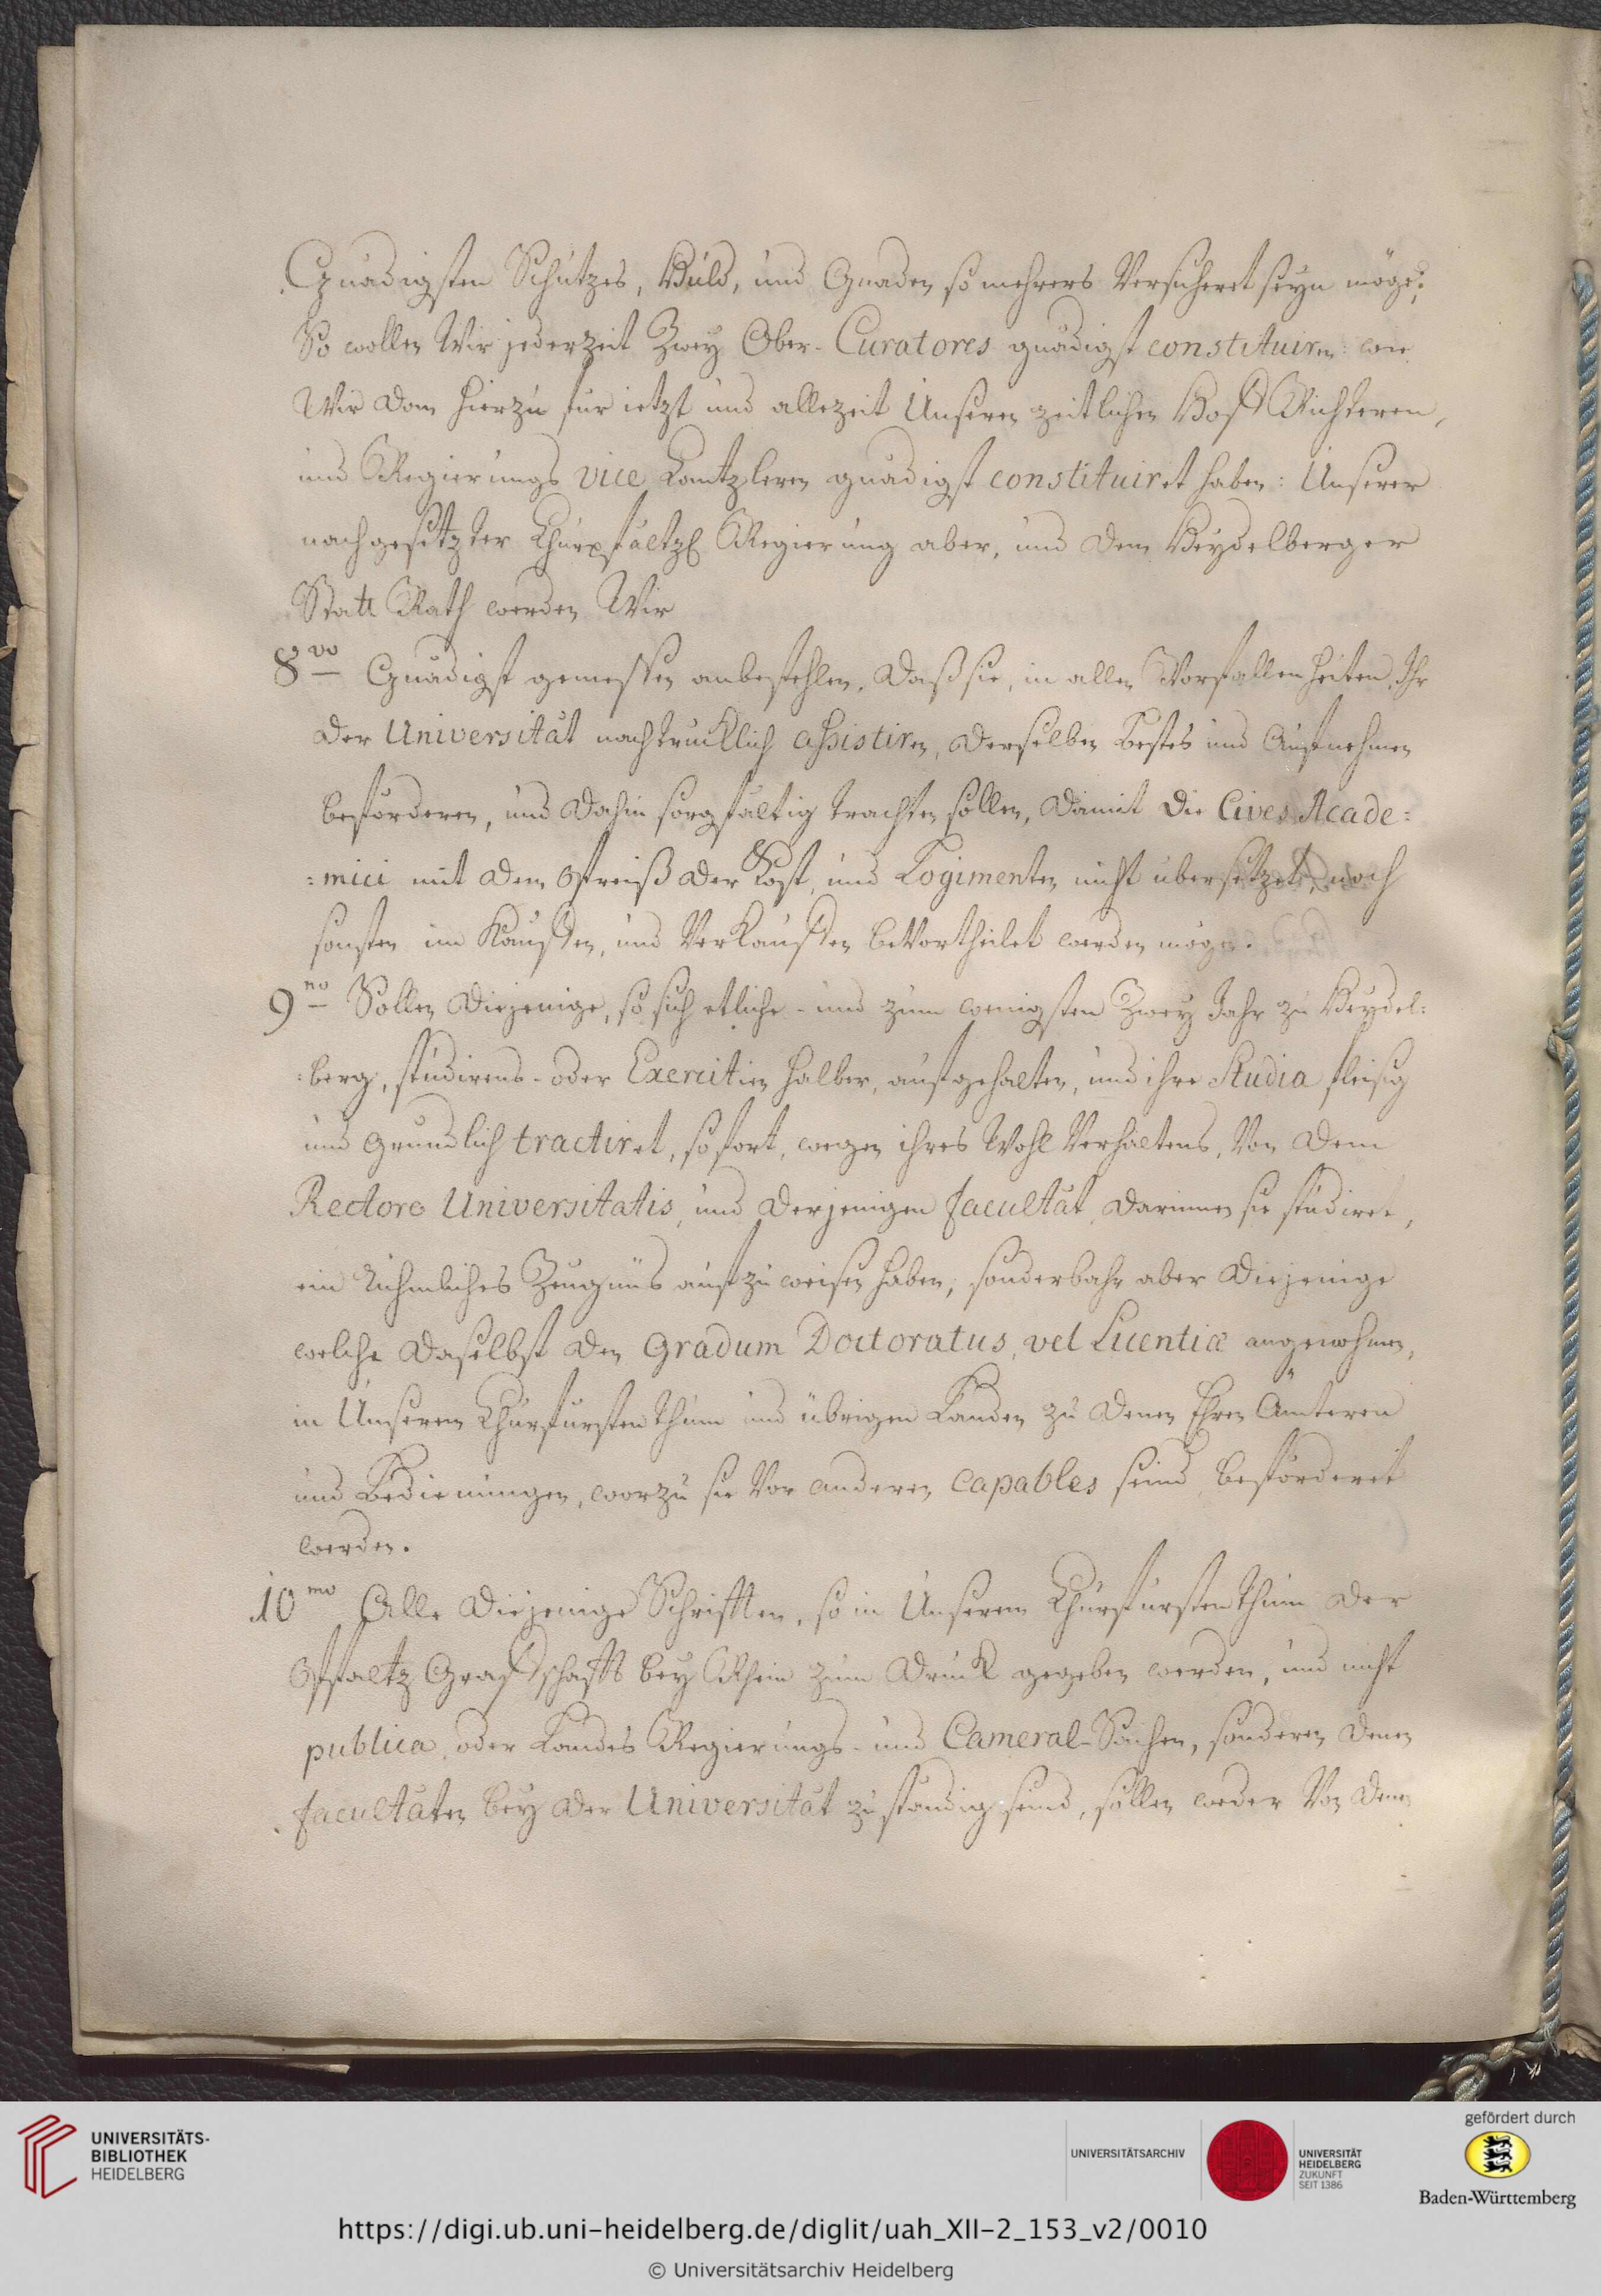 Gnädigsten Schutzes, Huld, und Gnaden so mehrers Versicheret seyn möge;
So wollen Wir jederzeit Zwey Ober-Curatores gnädigst constituiren: wie
Wir dan hierzu für ietzt und allezeit Unseren zeitlichen Hoff Richteren,
und Regierungs vice Cantzleren gnädigst constituiret haben: Unserer
nachgesetzter Churpfältzl Regierung aber, und dem Heydelberger
Statt Rath werden Wir
8vo Gnädigst gemessen anbefehlen, daß sie, in allen Vorfallenheiten, Ihr
der Universität nachtrucklich assistiren, derselben bestes und Aufnehmen
beförderen, und dahin sorgfältig trachten sollen, damit die Cives Acade=
=mici mit dem Preiß der Kost, und Logimenten nicht übersetzet, noch
sonsten im Kauffen, und Verkauffen beVortheilet werden mögen.
9no Sollen diejenige, so sich etliche- und zum wenigsten Zwey Jahr zu Heydel=
=berg, studirens- oder Exercitien halber, aufgehalten, und ihre Studia fleisig
und gründlich tractiret, sofort, wegen ihres Wohl Verhaltens, Von dem
Rectore Universitatis, und derjenigen facultät, darinnen sie studiret,
ein Rühmliches Zeugnüs aufzuweisen haben; sonderbahr aber diejenige
welche daselbst den Gradum Doctoratus, vel Licentiæ angenohmen,
in Unserem Churfürstenthum und übrigen Landen zu denen Ehren Ämteren
und Bedienungen, worzu sie Vor anderen capables seind, beförderet
werden.
10mo Alle diejenige Schrifften, so in Unserem Churfürstenthum der
Pfaltz Graffschafft bey Rhein zum Druck gegeben werden, und nicht
publica, oder Landes Regierungs- und Cameral-Sachen, sonderen denen
facultäten bey der Universität zuständig seind, sollen weder Von denen
UNIVERSITÄTS-
BIBLIOTHEK
HEIDELBERG
UNIVERSITÄTSARCHIV
UNIVERSITÄT
HEIDELBERG
ZUKUNFT
SEIT 1386
gefördert durch
Baden-Württemberg
https://digi.ub.uni-heidelberg.de/diglit/uah_XII-2_153_v2/0010
© Universitätsarchiv Heidelberg